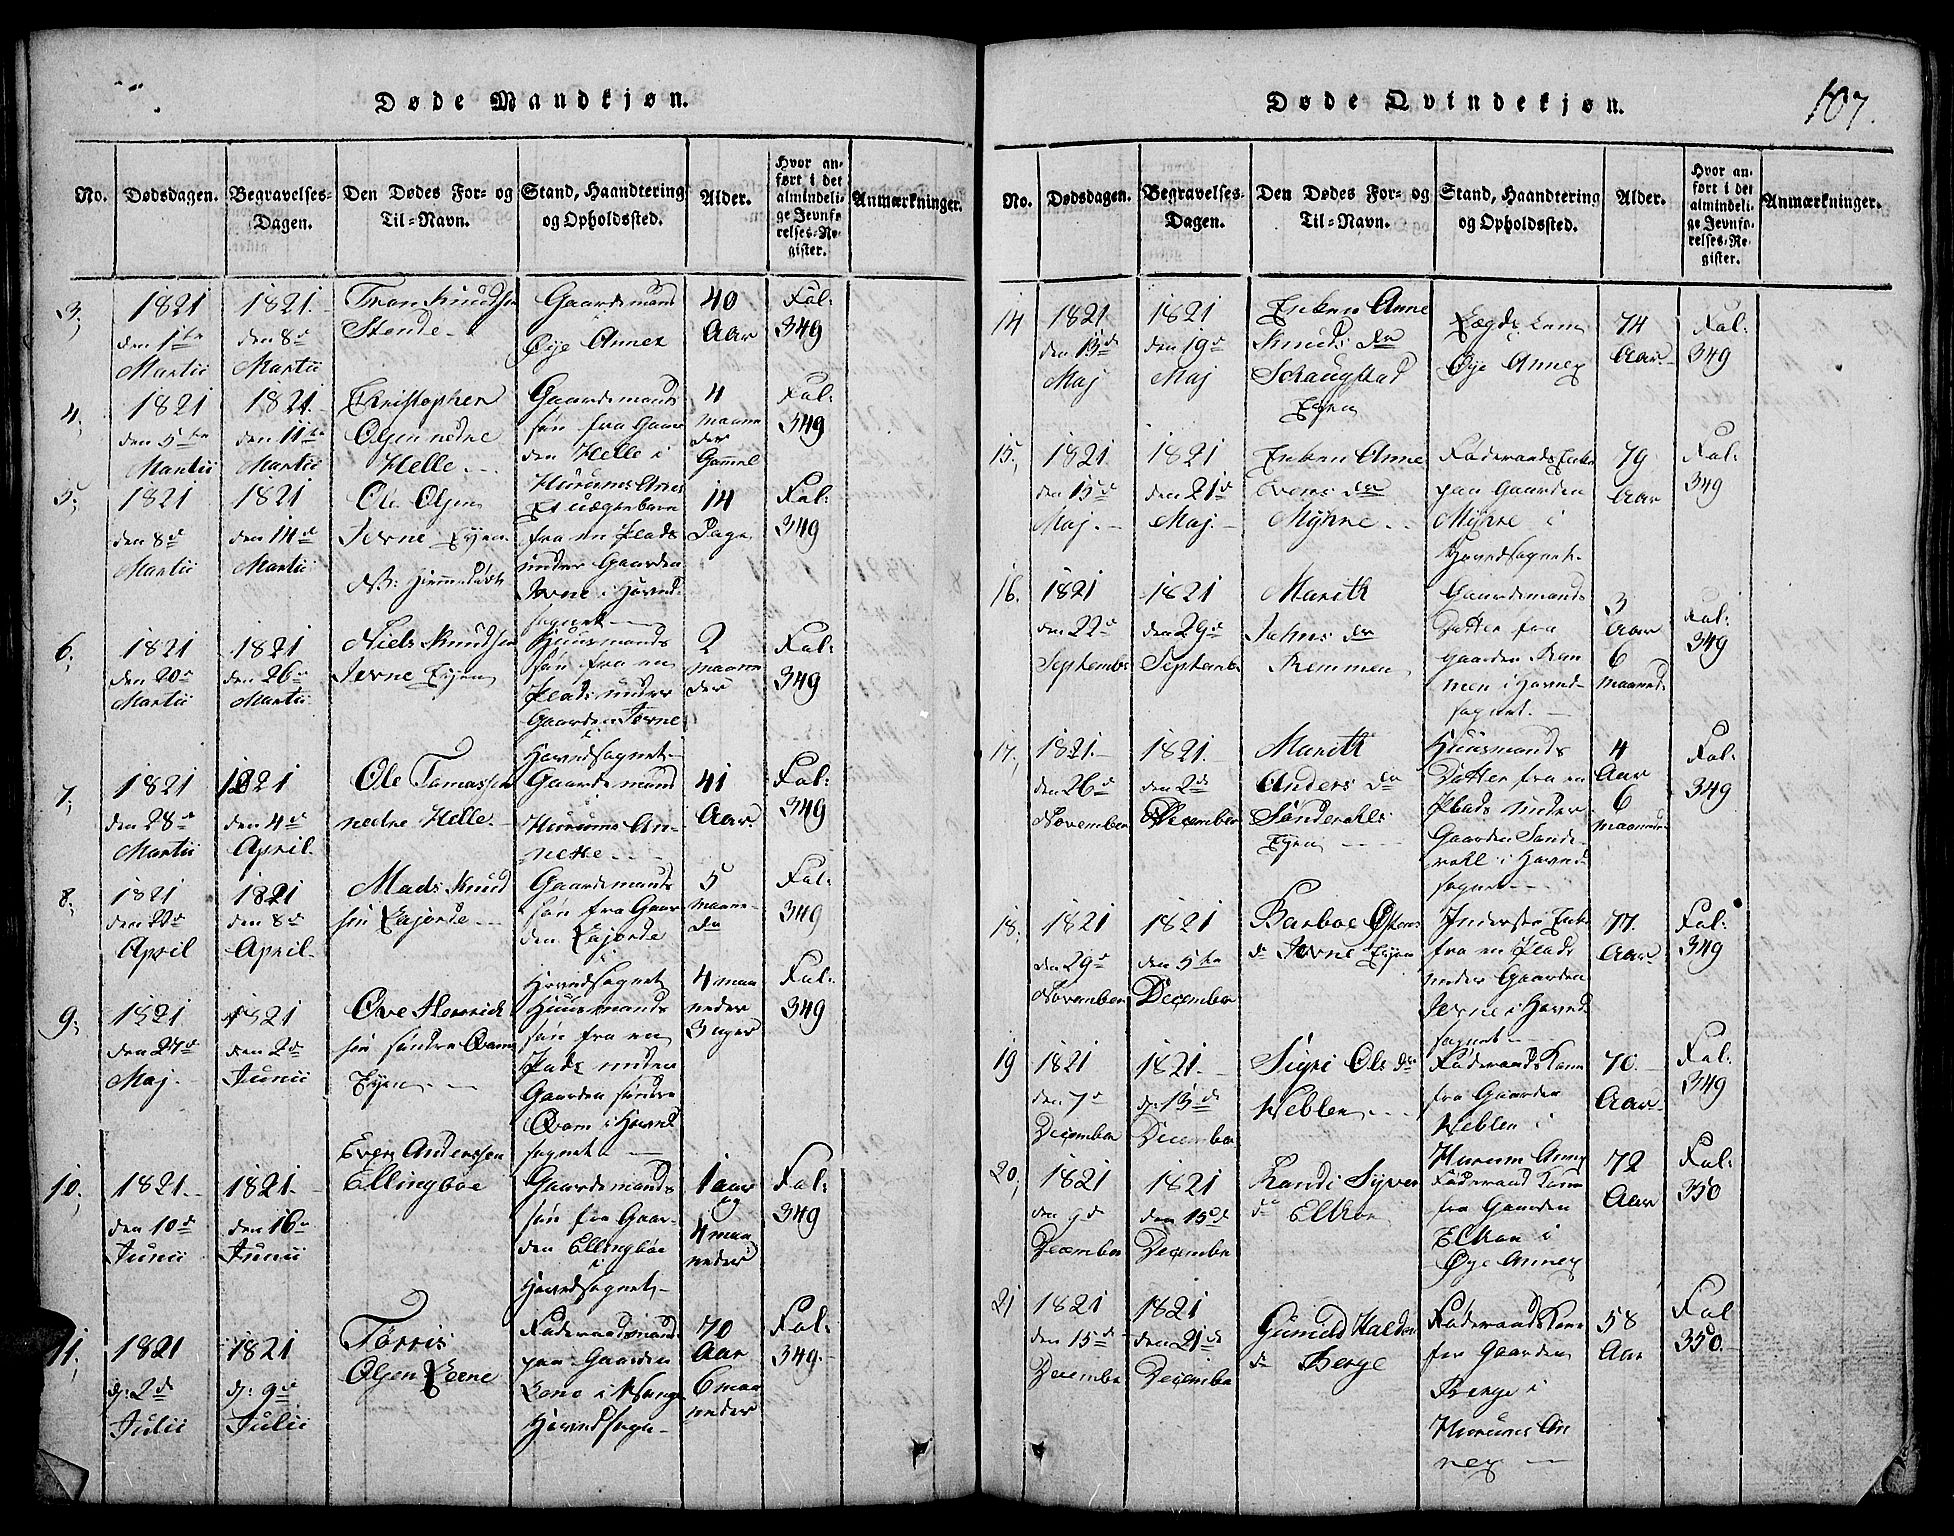 Døde Mandkjøn.
No. Dødsdagen. Begravelses-Dagen. Den Dødes For- og Til-Navn. Stand, Haandtering og Opholdssted. Alder. Hvor anført i det almindelige Jevnførelses-Register. Anmærkninger.
3, 1821 den 1ste Martii
1821. den 8de Martii
Tron Knudsen
Stende
Gaardemand
Øye Annex
40
Aar
Fol:
349
4, 1821 den 5te Martii
1821. den 11te Martii
Christopher
Olsen nedre
Helle
Gaardmands
søn fra Gaar
den Helle i
Hurums Anex
4
maane
der
Gammel
Fol:
349
5, 1821 den 8de Martii
1821 den 14de Martii
Ole Olsen
Jevne Eyen
NB: hiemmedøbt
Et uægte barn
fra en Plads
under Gaarden
Jevne i Hoved
sognet
14
Dage
Fol:
349
6, 1821 den 20de Martii
1821 den 26de Martii
Niels Knudsen
Jevne Eyen
Huusmands
søn fra en
Plads under
Gaarden Jevne
i
Hovedsognet
2
maane
der
Fol:
349
7, 1821 den 28de Martii
1821 den 4de April
Ole Tomassen
nedre Helle
Gaardemand
i
Hurums An-
nexe
41
Aar
Fol:
349
8, 1821 den 22de April
1821 den 8de April
Mads Knud
sen
Gaardemands
søn fra Gaar
den
Hovedsognet
5
maane-
der
Fol:
349
9, 1821 den 27de Maj
1821 den 2de Junii
Ove Henrich
sen søndre Qvam
Eyen
Huusmands
søn fra en
Plads under
Gaarden søndre
Qvam i Hoved
sognet
4 maa
neder
3 uger
Fol:
349
10, 1821. den 10de Junii
1821. den 16de Junii
Even Andersen
Ellingbøe
Gaardemands
søn fra Gaar-
den Ellingbøe
i
Hovedsognet
1 aar
og
4 maa
neder
Fol:
349
11, 1821 d: 2de Julii
1821 d: 9de Julii
Torris
Olsen Leene
Føderaadsmand
paa Gaarden
Hovedsogn
70
Aar
6 maa
neder
Fol:
349.
Døde Qvindekjøn.
107.
No. Dødsdagen. Begravelses-Dagen. Den Dødes For- og Til-Navn. Stand, Haandtering og Opholdssted. Alder. Hvor anført i det almindelige Jevnførelses-Register. Anmærkninger.
14 1821 den 13de Maj
1821 den 19de Maj
Enken Anne
Knuds dr
Schaugstad
Eyen
Lægds Lem
Øye Annex
74
Aar
Fol:
349
15, 1821. den 15de Maj.
1821 den 21de Maj.
Enken Anne
Evens dr
Myhre
Føderaads Enke
paa Gaarden
Myhre i
Hovedsognet
79
Aar
Fol:
349
16. 1821 den 22de September
1821 den 29de September
Marith
Johns dr
Remmen
Gaardemands
Datter fra
gaarden Rem
men i Hoved-
sognet.
3
Aar
6
maaned
Fol:
349
17, 1821. den 26de November
1821. den 2de December
Marith
Anders dr
Sønderols
Eyen
Huusmands
Datter fra en
Plads under
Gaarden Sønde
roll i Hoved
sognet
4
Aar
6
maaneder
Fol:
349
18, 1821 den 29de November
1821 den 5te December
Barboe Østens
dr Jevne Eyen
Inderste Enke
fra en Plads
under Gaarden
Jevne i Hoved
sognet
77
Aar
Fol:
349
19 1821 den 7de December
1821. d: 13de December
Sigri Ols dr
Weblen
Føderaads Kone
fra Gaarden
Weblen i
Hurum Annex
70.
Aar
Fol:
349
20, 1821 den 9de December
1821 den 15de December
Randi Syver
dr Elkøe
Føderaad Kone
fra Gaarden
i
Øye Annex
72
Aar
Fol:
350
21 1821 den 15de December
1821 den 21de December
Gunild Haldor
dr Berge
Føderaads Kone
fra Gaarden
Berge i
Hurums An
nex
58
Aar
Fol
350.